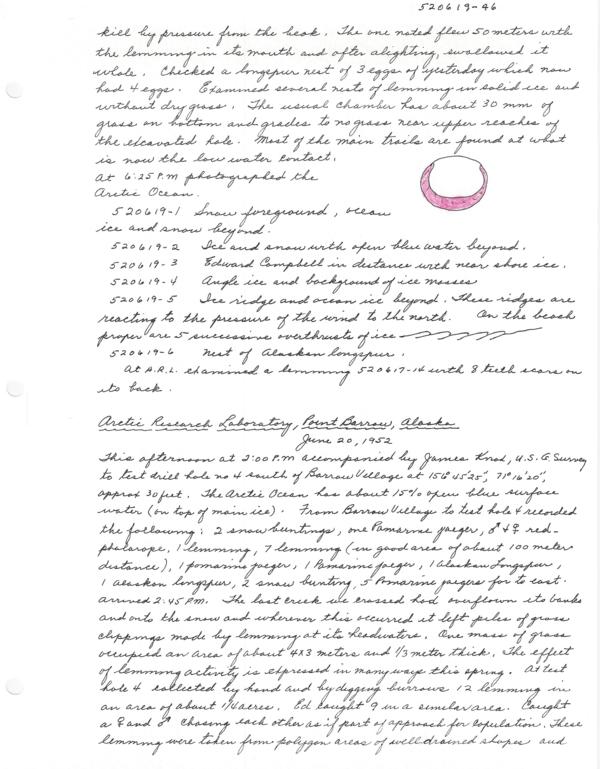 520619-46
kill by pressure from the beak. The one noted flew 50 meters with
the lemming in its mouth and after alighting, swallowed it
whole. Checked a longspur nest of 3 eggs of yesterday which now
had 4 eggs. Examined several nests of lemming in solid ice and
without dry grass. The usual chamber has about 30 mm of
grass on bottom and grades to no grass near upper reaches of
the excavated hole. Most of the main trails are found at what
is now the low water contact.
At 6:25 P.M photographed the
Arctic Ocean.
520619-1 Snow foreground, ocean
ice and snow beyond.
520619-2 Ice and snow with open blue water beyond.
520619-3 Edward Campbell in distance with near shore ice.
520619-4 Angle ice and background of ice masses
520619-5 Ice ridge and ocean ice beyond. These ridges are
reacting to the pressure of the wind to the north. On the beach
proper are 5 successive overthrusts of ice
520619-6 Nest of Alaskan longspur.
At A.R.L. examined a lemming 520617-14 with 8 teeth scars on
its back.
Arctic Research Laboratory, Point Barrow, Alaska
June 20, 1952
This afternoon at 2:00 P.M accompanied by James Knod, U.S.G. Survey
to test drill hole no 4 south of Barrow Village at 156° 45' 25", 71° 16' 20",
approx 30 feet. The Arctic Ocean has about 15% open blue surface
water (on top of main ice). From Barrow Village to test hole 4 recorded
the following: 2 snow buntings, one Pomarine jaeger, ♂ & ♀ red-
phalarope, 1 lemming, 7 lemming (in good area of about 100 meter
distance), 1 pomarine jaeger, 1 Pomarine jaeger, 1 Alaskan Longspur,
1 alaskan longspur, 2 snow bunting, 5 Pomarine jaegers far to east.
arrived 2:45 P.M. The last creek we crossed had overflown its banks
and onto the snow and wherever this occurred it left piles of grass
clippings made by lemming at its headwaters. One mass of grass
occupied an area of about 4x3 meters and 1/3 meter thick. The effect
of lemming activity is expressed in many ways this spring. At test
hole 4 collected by hand and by digging burrows 12 lemming in
an area of about 1/4 acres. Ed caught 9 in a similar area. Caught
a ♀ and ♂ chasing each other as if part of approach for copulation. These
lemming were taken from polygon areas of well drained slopes and